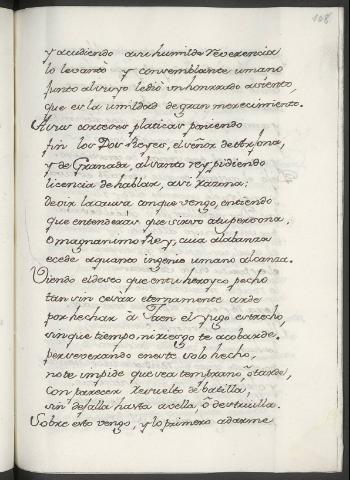 108
y acudiendo a su humilde reverencia
lo levantò y con semblante umano
junto al suyo le diò un honrrado asiento,
que es la umildad de gran merecimiento.
A sus cortesses platicas poniendo
fin los Dos Reyes, el señor de Arjona,
y de Granada, al santo rey pidiendo
licencia de hablar, assi razona:
de oir la causa con que vengo, entiendo
que entenderàs que sirvo a tu persona,
o magnanimo Rey, cuia alabanza
ecede a quanto ingenio umano alcanza.
Viendo el deseo que en tu heroyco pecho
tan sin cesar eternamente arde
por hechar à Jaen el yugo estrecho,
sin que tiempo, ni riesgo te acobarde.
perseverando en este solo hecho,
no te impide que sea temprano, ò tarde,
con parecer resuelto de batilla,
sin dejalla hasta avella, ò destruilla.
Sobre esto vengo, y lo primero a darme